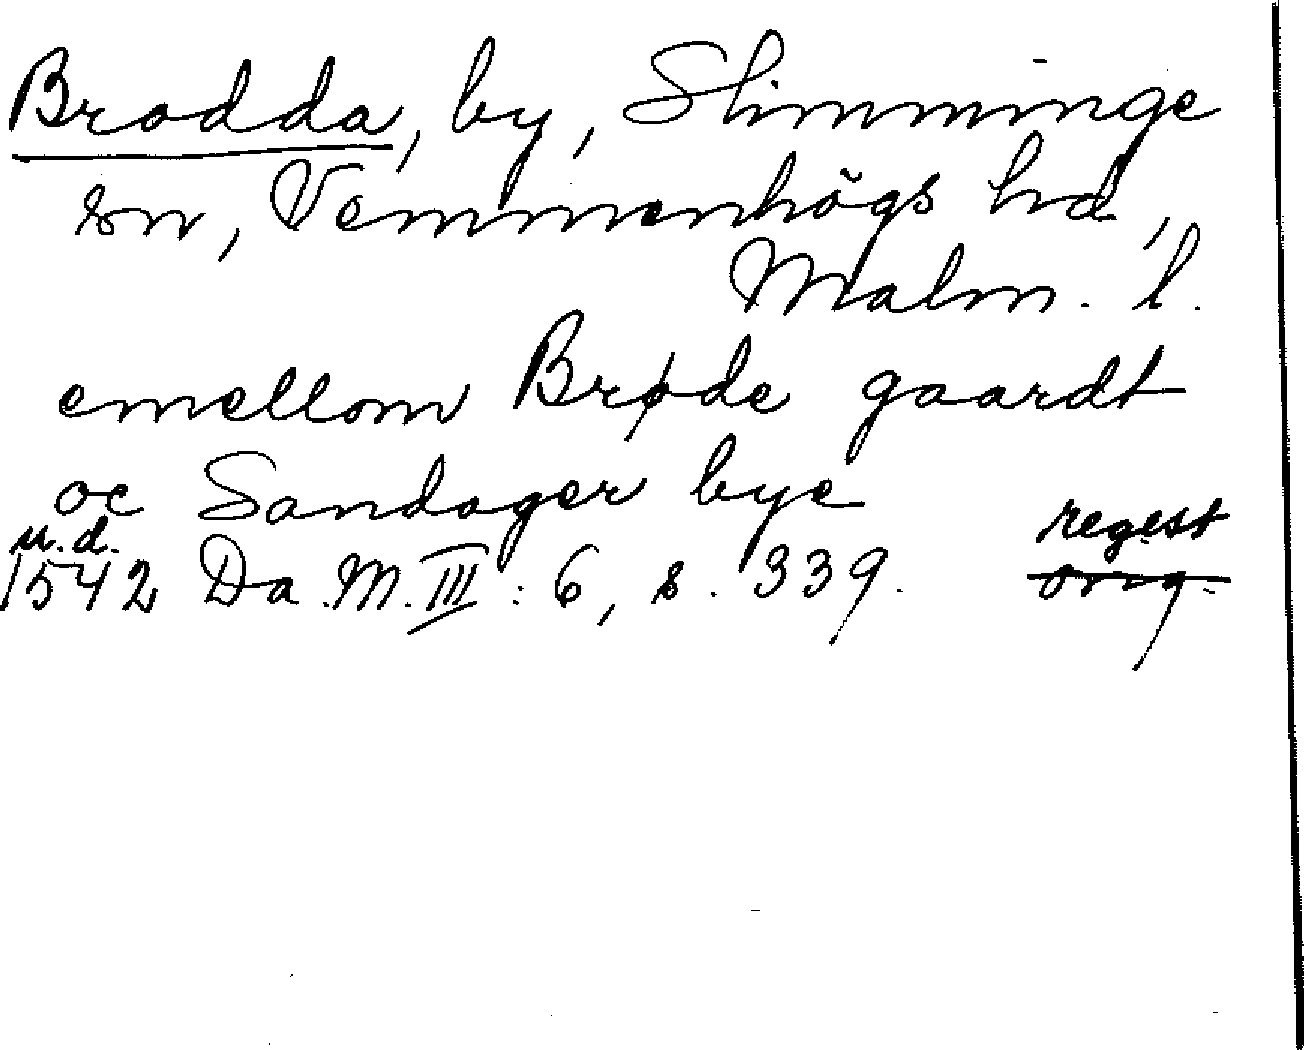 Brodda, by, Slimminge
sn, Vemmenhögs hd,
Malm. l.
emellom Brøde gaardt
oc Sandager bye
u.d. regest
1542 Da. M. III : 6, s. 339. orig.